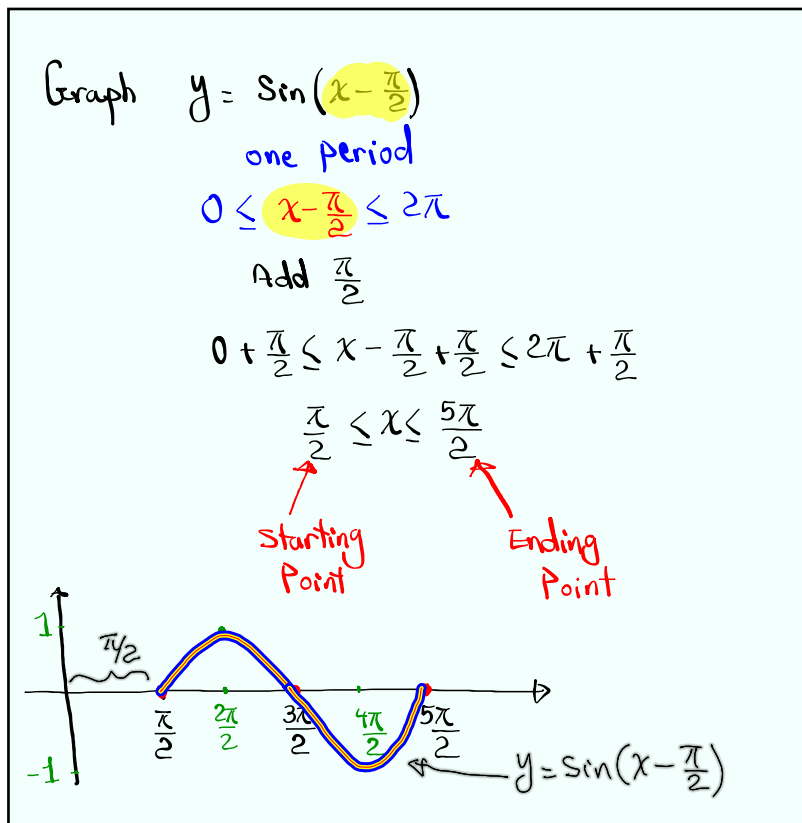 Graph y = Sin(x - π/2)
one period
0 ≤ x - π/2 ≤ 2π
Add π/2
0 + π/2 ≤ x - π/2 + π/2 ≤ 2π + π/2
π/2 ≤ x ≤ 5π/2
Starting Point
Ending Point
1
π/2
π/2 2π/2 3π/2 4π/2 5π/2
-1
y = Sin(x - π/2)